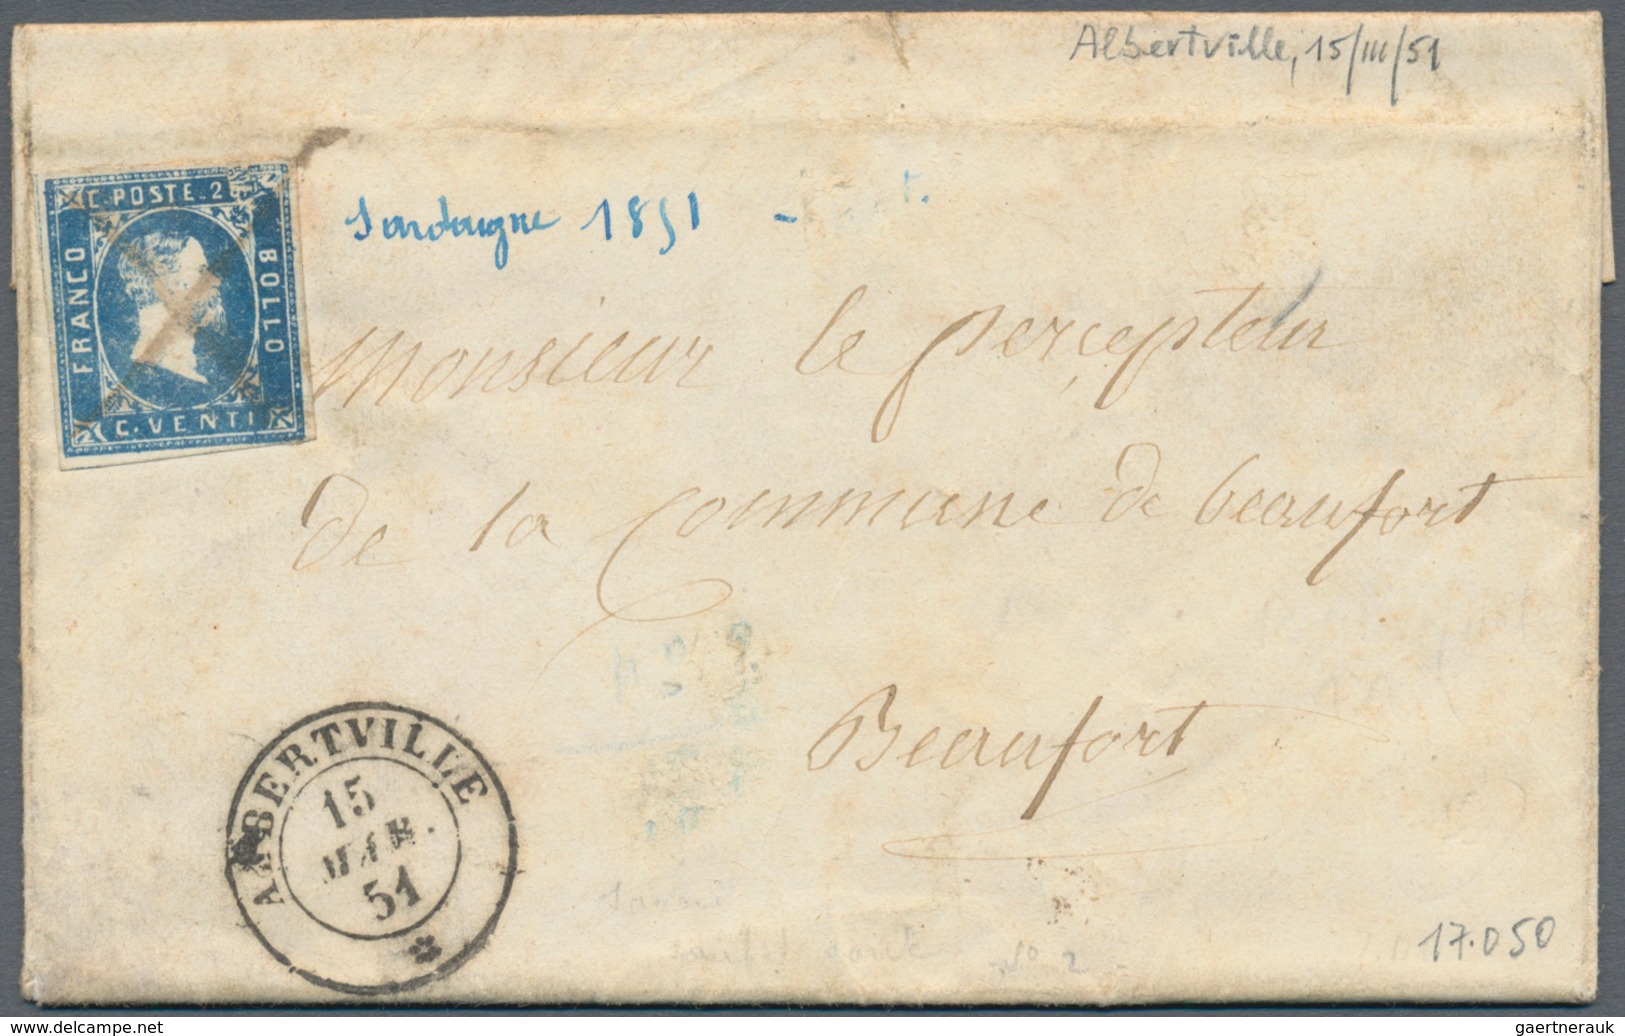 Albertville, 15/III/51
C. POSTE. 2
FRANCO
BOLLO
C. VENTI
Sardaigne 1851 -
Monsieur le perçepteur
de la Commune de beaufort
Beaufort
ALBERTVILLE
15
MAR.
51
17.050
www.delcampe.net
gaertnerauk